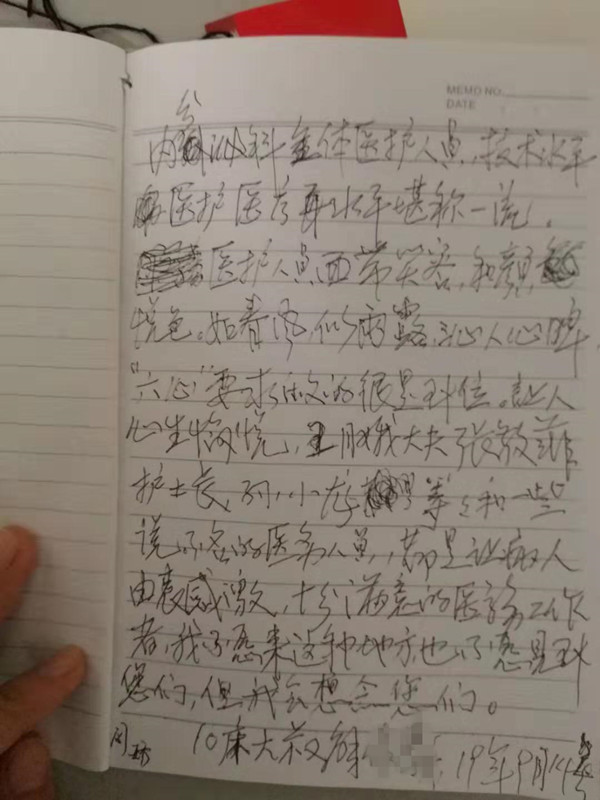 MEMO NO.
DATE
内分泌科全体医护人员,技术水平
医护医疗水平堪称一流。
医护人员面带笑容,和颜
悦色。如春风,似雨露,沁人心脾,
"六心"要求做的很是到位。让人
心生愉悦,主服我大夫张敏菲
护士长,小 等等和一些
说不名的医务人员,都是让病人
由衷感激,十分满意的医务工作
者,我不愿来这种地方也不愿见到
您们,但我会想念您们。
10床大 19年9月14号